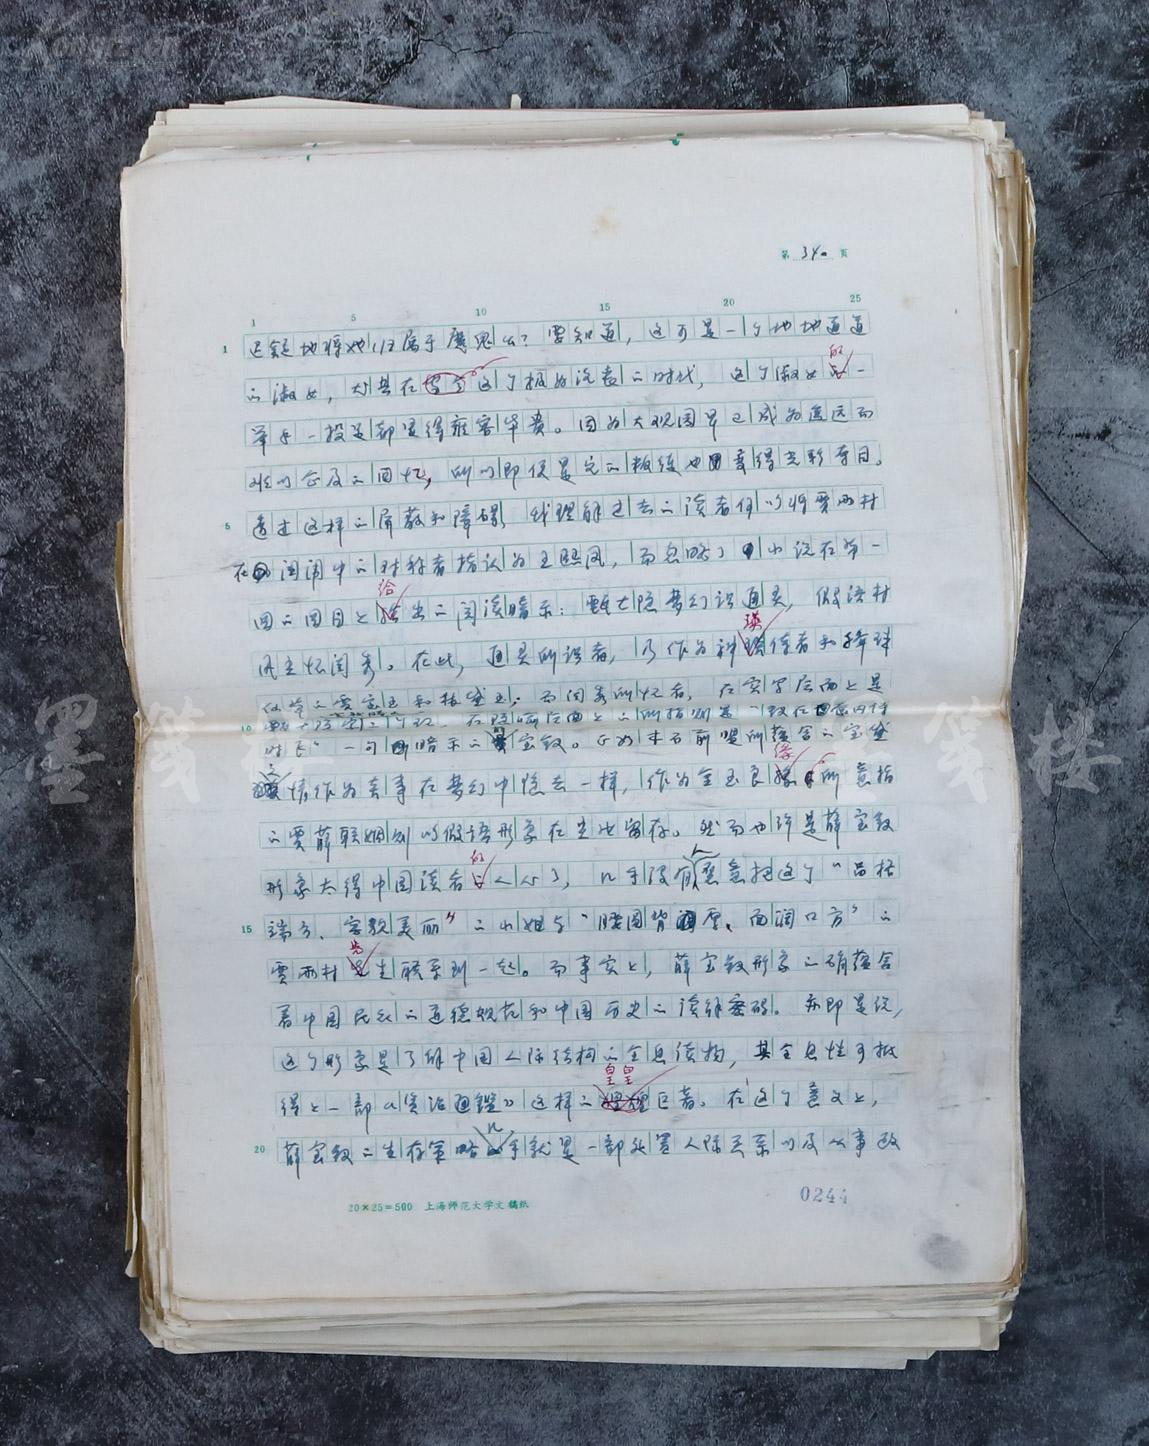 第 340 页
1 5 10 15 20 25
地将她归属于魔鬼么？要知道，这可是一个地地道道
的淑女，尤其在这个极为的时代，这个淑女的一
举手一投足都显得雍容华贵。因为大观园早已成为遥远而
难以企及的回忆，所以即使是它的也变得光彩夺目。
5 透过这样的屏蔽和障碍，我理解过去的读者何以将贾雨村
在闺阁中的对称者指认为王熙凤，而忽略了小说在第一
回的回目上给出的阅读暗示：甄士隐梦幻识通灵，假语村
风尘怀闺秀。在此，通灵所识者，乃作为神瑛侍者和绛珠
仙草的贾宝玉和林黛玉；而闺秀所怀者，在实字层面上是
10
时飞”一句暗示的宝钗。正如木石前盟所蕴含的宝黛
情作为真事在梦幻中隐去一样，作为金玉良缘所意指
的贾薛联姻则以假语形象在尘世留存。然而也许是薛宝钗
形象太得中国读者的人心了，几乎没有人愿意把这个“品格
15 端方、容貌美丽”的小姐与“腰圆背厚、面阔口方”的
贾雨村先生联系到一起。而事实上，薛宝钗形象的确蕴含
着中国民族的道德规范和中国历史的读解密码。亦即是说，
这个形象是了解中国人际结构的全息读物，其全息性可抵
得上一部《资治通鉴》这样的皇皇巨著。在这个意义上，
20 薛宝钗的生存策略几乎就是一部处置人际关系以及从事政
20×25=500 上海师范大学文稿纸
0244
墨笺楼
墨笺楼